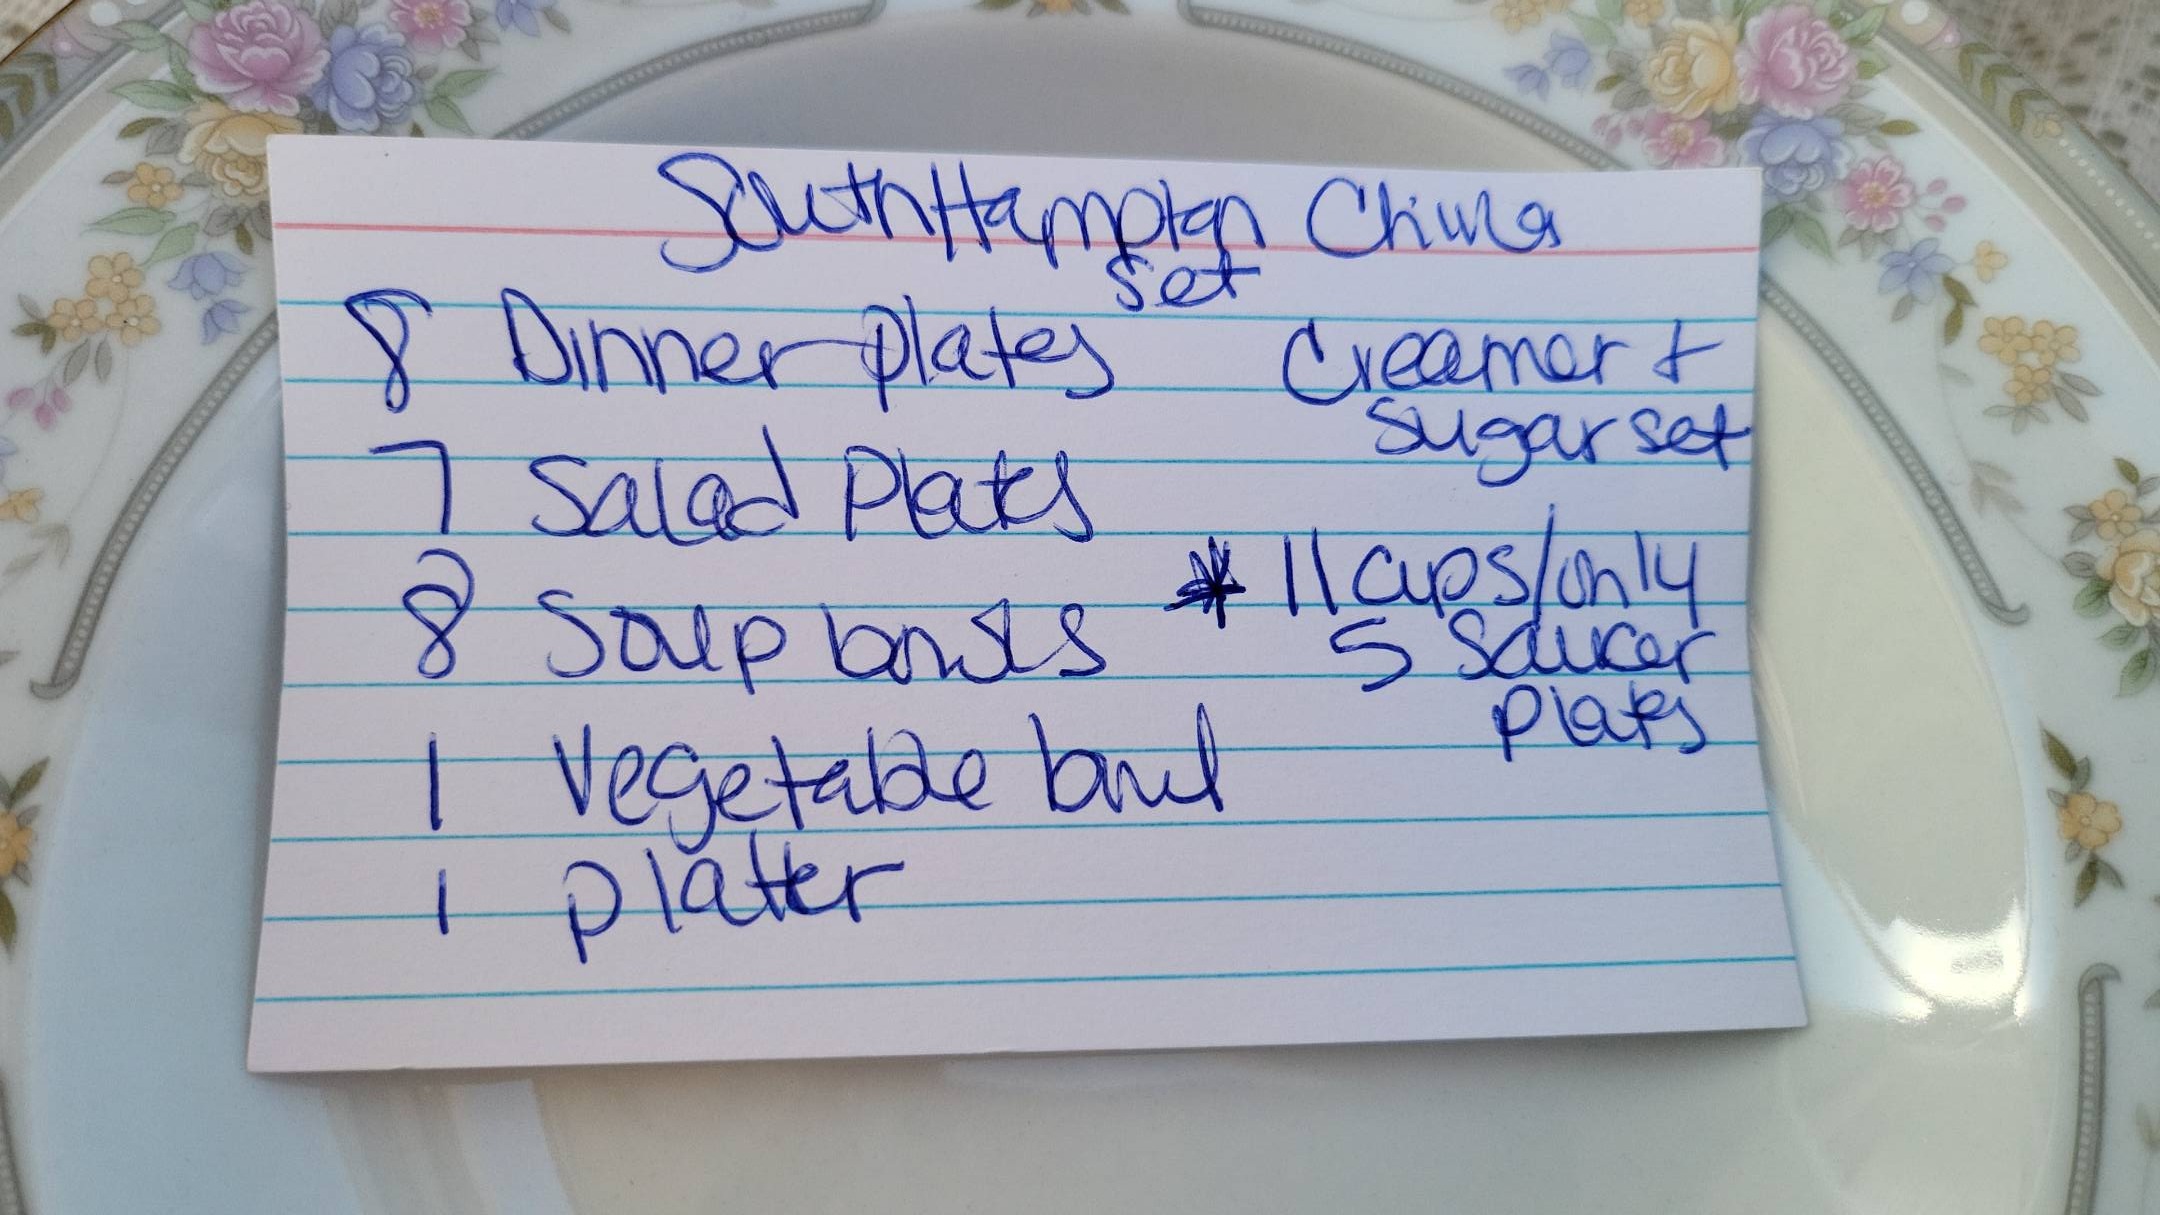 SouthHampton China
set
8 Dinner plates
7 Salad Plates
8 Soup bowls
1 Vegetable bowl
1 platter
Creamer +
sugar set
* 11 cups/only
5 Saucer
plates